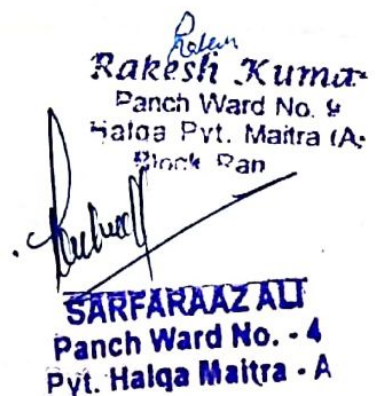 Rakesh Kumar
Panch Ward No. 9
Halqa Pyt. Maitra (A
Block Ram
SARFARAAZ ALI
Panch Ward No. - 4
Pyt. Halqa Maitra - A